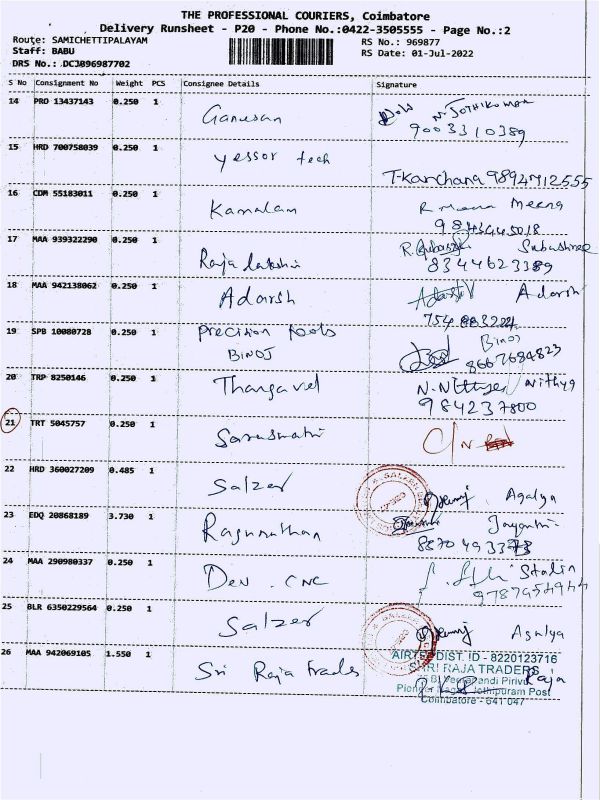 THE PROFESSIONAL COURIERS, Coimbatore
Delivery Runsheet - P20 - Phone No.:0422-3505555 - Page No.:2
Route: SAMICHETTIPALAYAM RS No.: 969877
Staff: BABU RS Date: 01-Jul-2022
DRS No.: DCJ096987702
S No Consignment No Weight PCS Consignee Details Signature
14 PRO 13437143 0.250 1 Ganesan N. JOTHIKUMAR
9003310389
15 HRD 700758039 0.250 1 yessor tech
T-Kanchana 9894712555
16 CDM 55183011 0.250 1 Kamalam Meena
17 MAA 939322290 0.250 1 Subashree
8344623389
18 MAA 942138062 0.250 1 Adarsh Adarsh
19 SPB 10080728 0.250 1 precision tools
BINOJ BINOJ
8667684823
20 TRP 8250146 0.250 1 Thangavel Nithya
984237800
21 TRT 5045757 0.250 1 Saraswathi C/N
22 HRD 360027209 0.485 1 Salzer Agalya
23 EDQ 20868189 3.730 1 Ragunathan Jayanthi
24 MAA 290980337 0.250 1 Dev. CNC Stalin
25 BLR 6350229564 0.250 1 Salzer Agalya
26 MAA 942069105 1.550 1 Sri Raja Trades
AIRTEL DIST. ID - 8220123716
SHRI RAJA TRADERS
Raja
Jothipuram Post
Coimbatore - 641 047